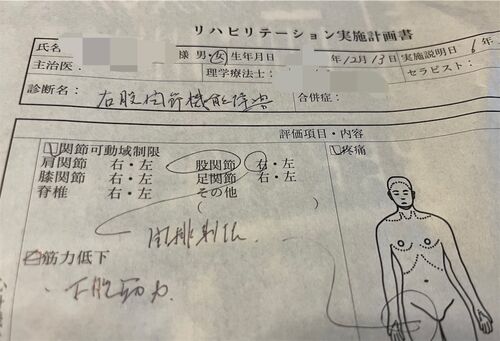 リハビリテーション実施計画書
氏名 様 男・女 生年月日 年12月13日 実施説明日 年
主治医： 理学療法士： セラピスト：
診断名： 右股関節機能障害 合併症：
評価項目・内容
関節可動域制限 疼痛
肩関節 右・左 股関節 右・左
膝関節 右・左 足関節 右・左
脊椎 右・左 その他
（ ）
制限
筋力低下
・下肢筋力